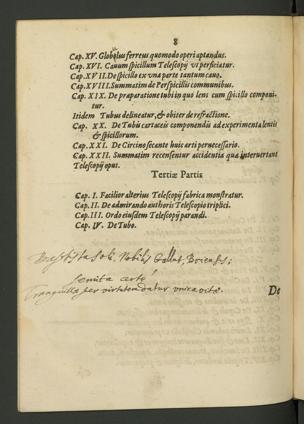 8
Cap. XV. Globulus ferreus quomodo operi aptandus.
Cap. XVI. Cauum spicillum Telescopÿ vt perficiatur.
Cap. XVII. De spicillo ex vna parte tantum cauo.
Cap. XVIII. Summatim de Perspicillis communibus.
Cap. XIX. De præparatione tubi in quo lens cum spicillo componi-
tur.
Itidem Tubus delineatur, & obiter de refractione.
Cap. XX. De Tubis cartaceis componendis ad experimenta lentis
& spicillorum.
Cap. XXI. De Circino secante huic arti pernecessario.
Cap. XXII. Summatim recensentur accidentia quæ interuertant
Telescopÿ opus.
Tertiæ Partis
Cap. I. Facilior alterius Telescopÿ fabrica monstratur.
Cap. II. De admirando authoris Telescopio triplici.
Cap. III. Ordo eiusdem Telescopÿ parandi.
Cap. IV. De Tubo.
Nobilis
arte
Tranquilla per virtutem datur unica vitæ.
De